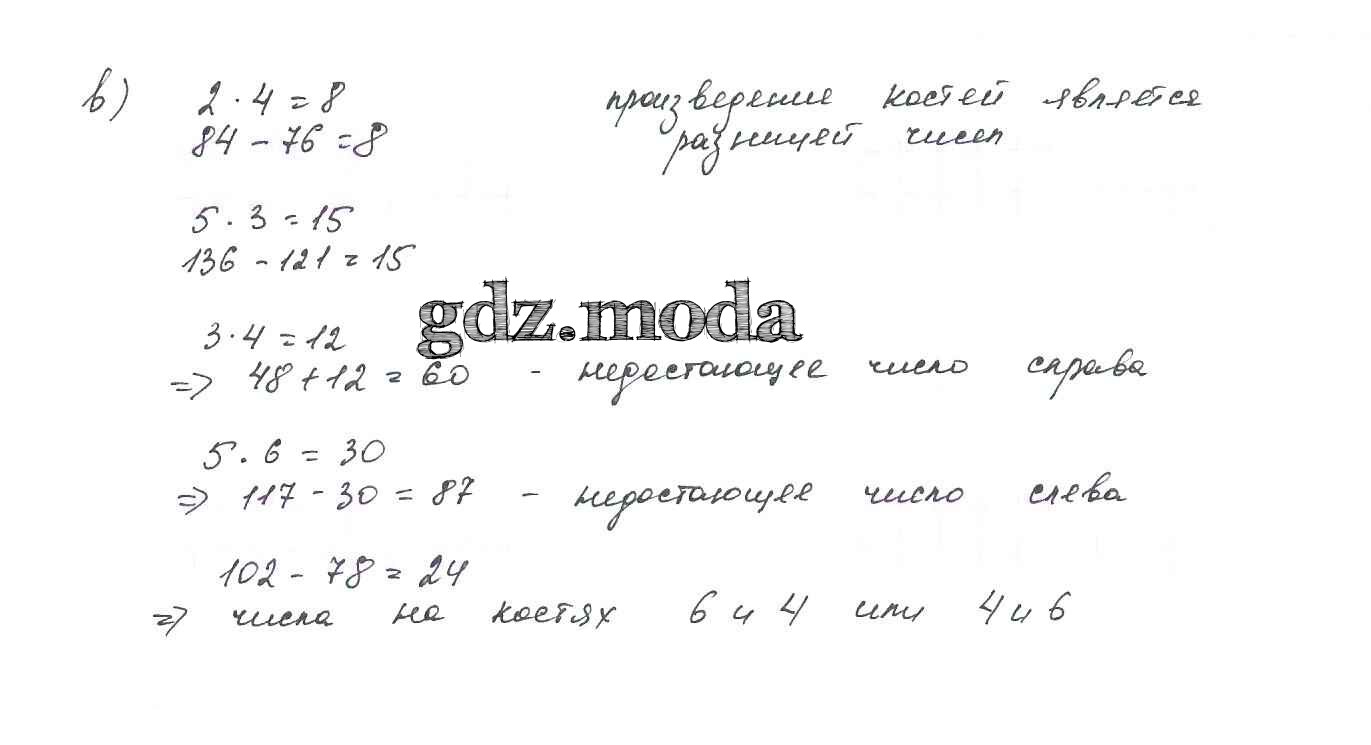 в) 2 · 4 = 8 произведение костей является
84 - 76 = 8 разницей чисел
5 · 3 = 15
136 - 121 = 15
gdz.moda
3 · 4 = 12
=> 48 + 12 = 60 - недостающее число справа
5 · 6 = 30
=> 117 - 30 = 87 - недостающее число слева
102 - 78 = 24
=> числа на костях 6 и 4 или 4 и 6